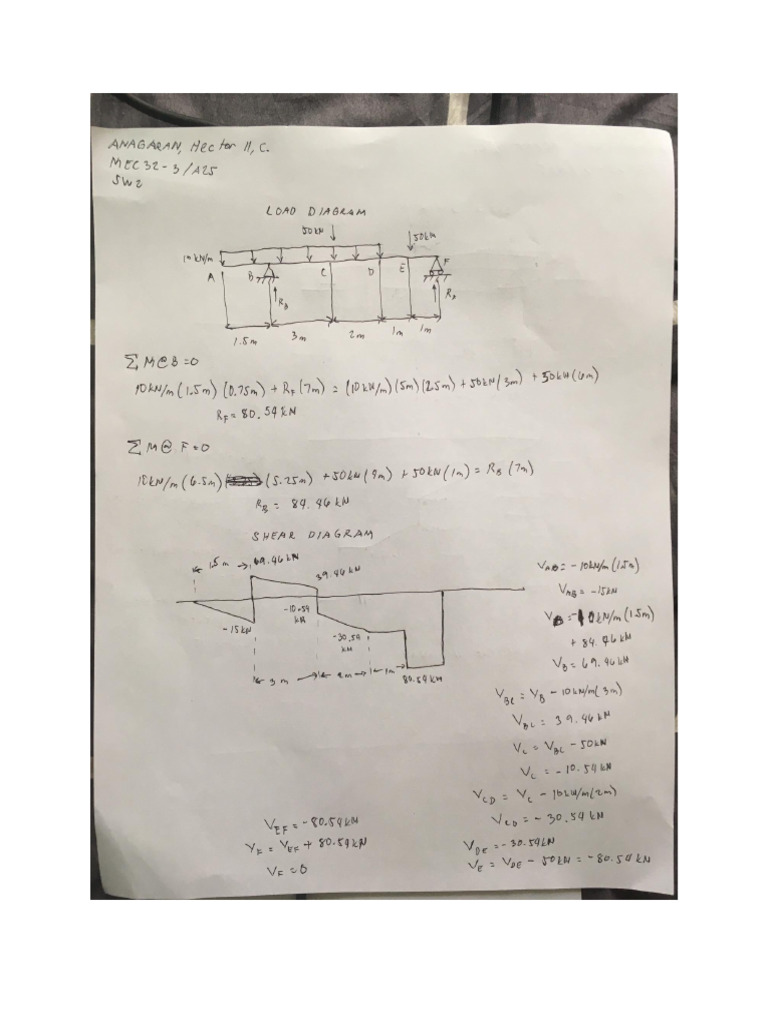 ANAGARAN, Hector II, C.
MEC32-3/A25
SW2
LOAD DIAGRAM
50kN
50kN
10 kN/m
A
B
C
D
E
F
R_B
R_F
1.5m
3m
2m
1m
1m
ΣM@B=0
10kN/m(1.5m)(0.75m) + R_F(7m) = (10kN/m)(5m)(2.5m) + 50kN(3m) + 50kN(6m)
R_F = 80.54kN
ΣM@F=0
10kN/m(6.5m)(5.25m) + 50kN(4m) + 50kN(1m) = R_B(7m)
R_B = 84.46kN
SHEAR DIAGRAM
1.5m
69.46kN
39.46kN
-15kN
-10.54
kN
-30.54
kN
3m
2m
1m
80.54kN
V_AB = -10kN/m(1.5m)
V_AB = -15kN
V_B = -10kN/m(1.5m)
+ 84.46kN
V_B = 69.46kN
V_BC = V_B - 10kN/m(3m)
V_BC = 39.46kN
V_C = V_BC - 50kN
V_C = -10.54kN
V_CD = V_C - 10kN/m(2m)
V_CD = -30.54kN
V_DE = -30.54kN
V_E = V_DE - 50kN = -80.54kN
V_EF = -80.54kN
V_F = V_EF + 80.54kN
V_F = 0